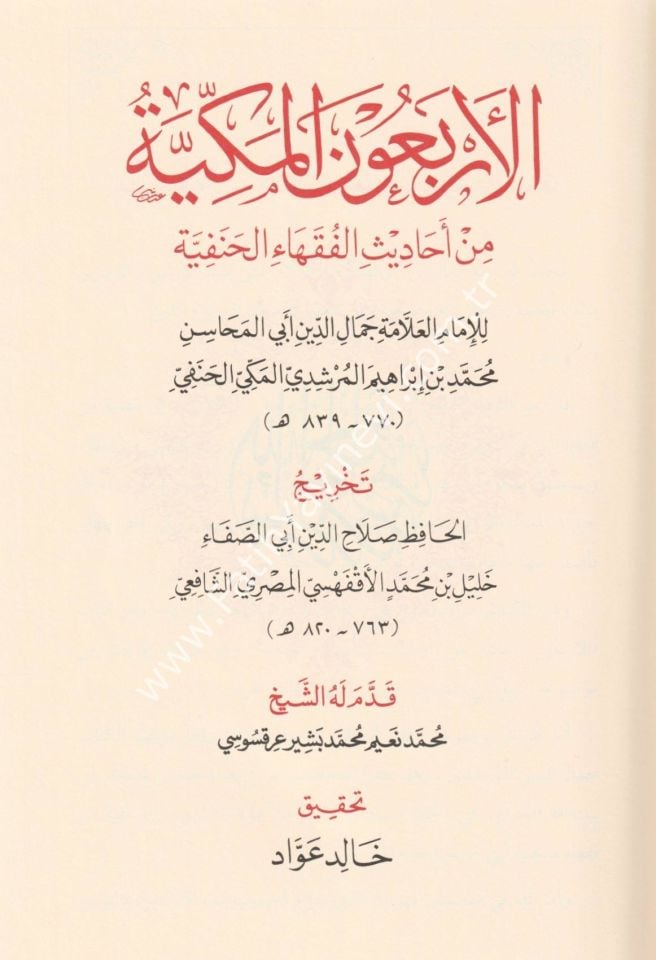 الأَرْبَعُونَ المَكِّيَّةُ
مِنْ أَحَادِيْثِ الفُقَهَاءِ الحَنَفِيَّة
لِلْإِمَامِ العَلَّامَةِ جَمَالِ الدِّينِ أَبِي المَحَاسِنِ
مُحَمَّدِ بْنِ إِبْرَاهِيمَ المُرْشِدِيِّ المَكِّيِّ الحَنَفِيِّ
(٧٧٠ - ٨٣٩ هـ)
تَخْرِيْجُ
الحَافِظِ صَلَاحِ الدِّيْنِ أَبِي الصَّفَاءِ
خَلِيْلِ بْنِ مُحَمَّدٍ الأَقْفَهْسِيِّ المِصْرِيِّ الشَّافِعِيِّ
(٧٦٣ - ٨٢٠ هـ)
قَدَّمَ لَهُ الشَّيخ
مُحَمَّد نَعِيم مُحَمَّد بَشِير عِرقسُوسِي
تحقيق
خَالِد عَوَّاد